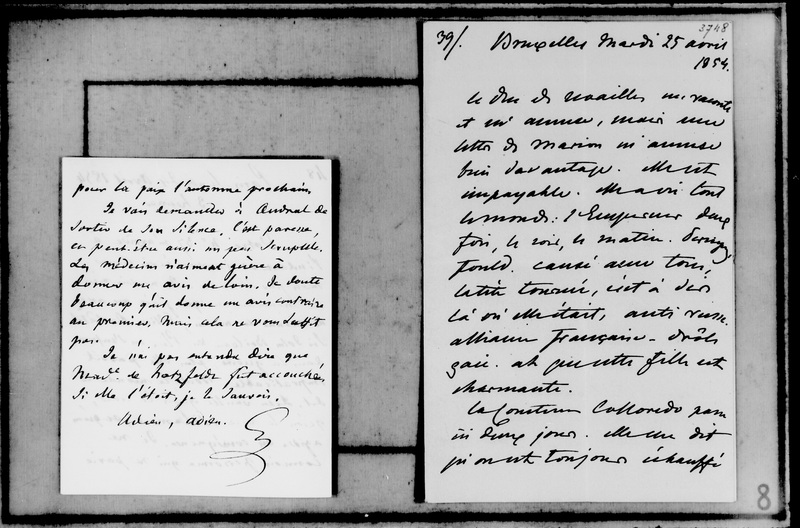 pour la paix l'automne prochain.
Je vais demander à Andral de
sortir de son silence, c'est paresse,
et peut-être aussi un peu scrupule.
Les médecins n'aiment guère à
donner un avis de loin. Je doute
beaucoup qu'il donne un avis contraire
au premier. Mais cela ne vous suffit
pas.
Je n'ai pas entendu dire que
Mad.e de Hatzfeldt fut accouchée.
Si elle l'était, je le saurois.
Adieu, adieu.
3748
39/. Bruxelles Mardi 25 avril
1854.
le duc de Noailles me raconte
et m'amuse, mais une
lettre de Marion m'amuse
bien davantage. Elle est
impayable. Elle a vu tout
le monde: l'Empereur deux
fois, le soir, le matin.
Fould. causé avec tous,
la tête tournée, c'est à dire
là où elle était, anti russe
alliance française. drôle
gaie. ah que cette fille est
charmante.
La Comtesse Colloredo passe
ici deux jours. Elle me dit
qu'on est toujours échauffé
8